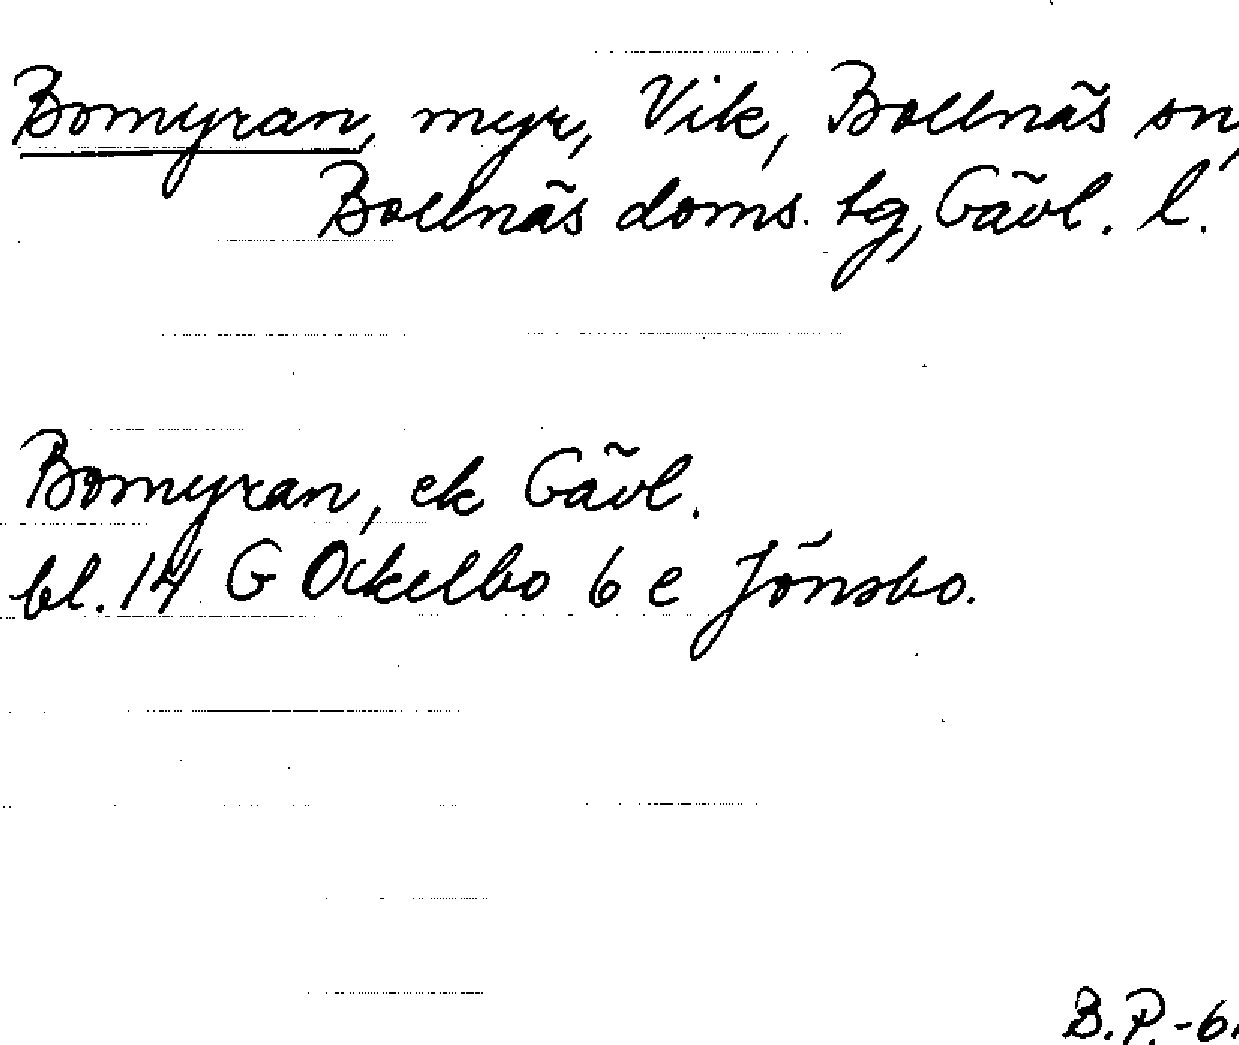 Bomyran, myr, Vik, Bollnäs sn,
Bollnäs doms. tg, Gävl. l.
Bomyran, ek Gävl.
bl. 14 G Ockelbo 6 e Jönsbo.
B.P.-6